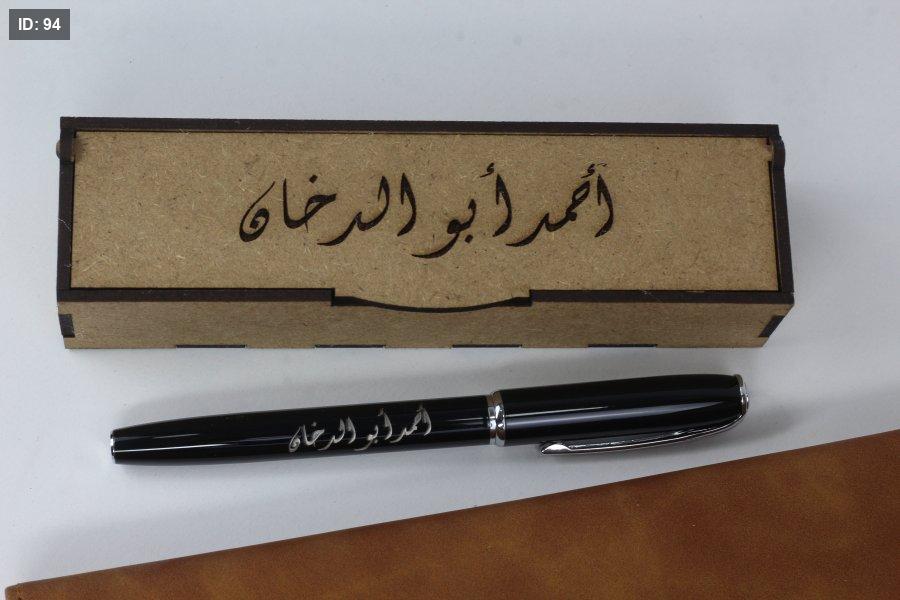 ID: 94
أحمد أبو الدخان
أحمد أبو الدخان